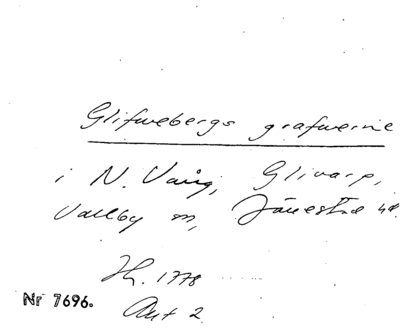 Glifwebergs grafwerne
i N. Vång, Glivarp,
Vallby m, Järrestad hd.
Hh. 1778
Nr 7696.
Akt 2